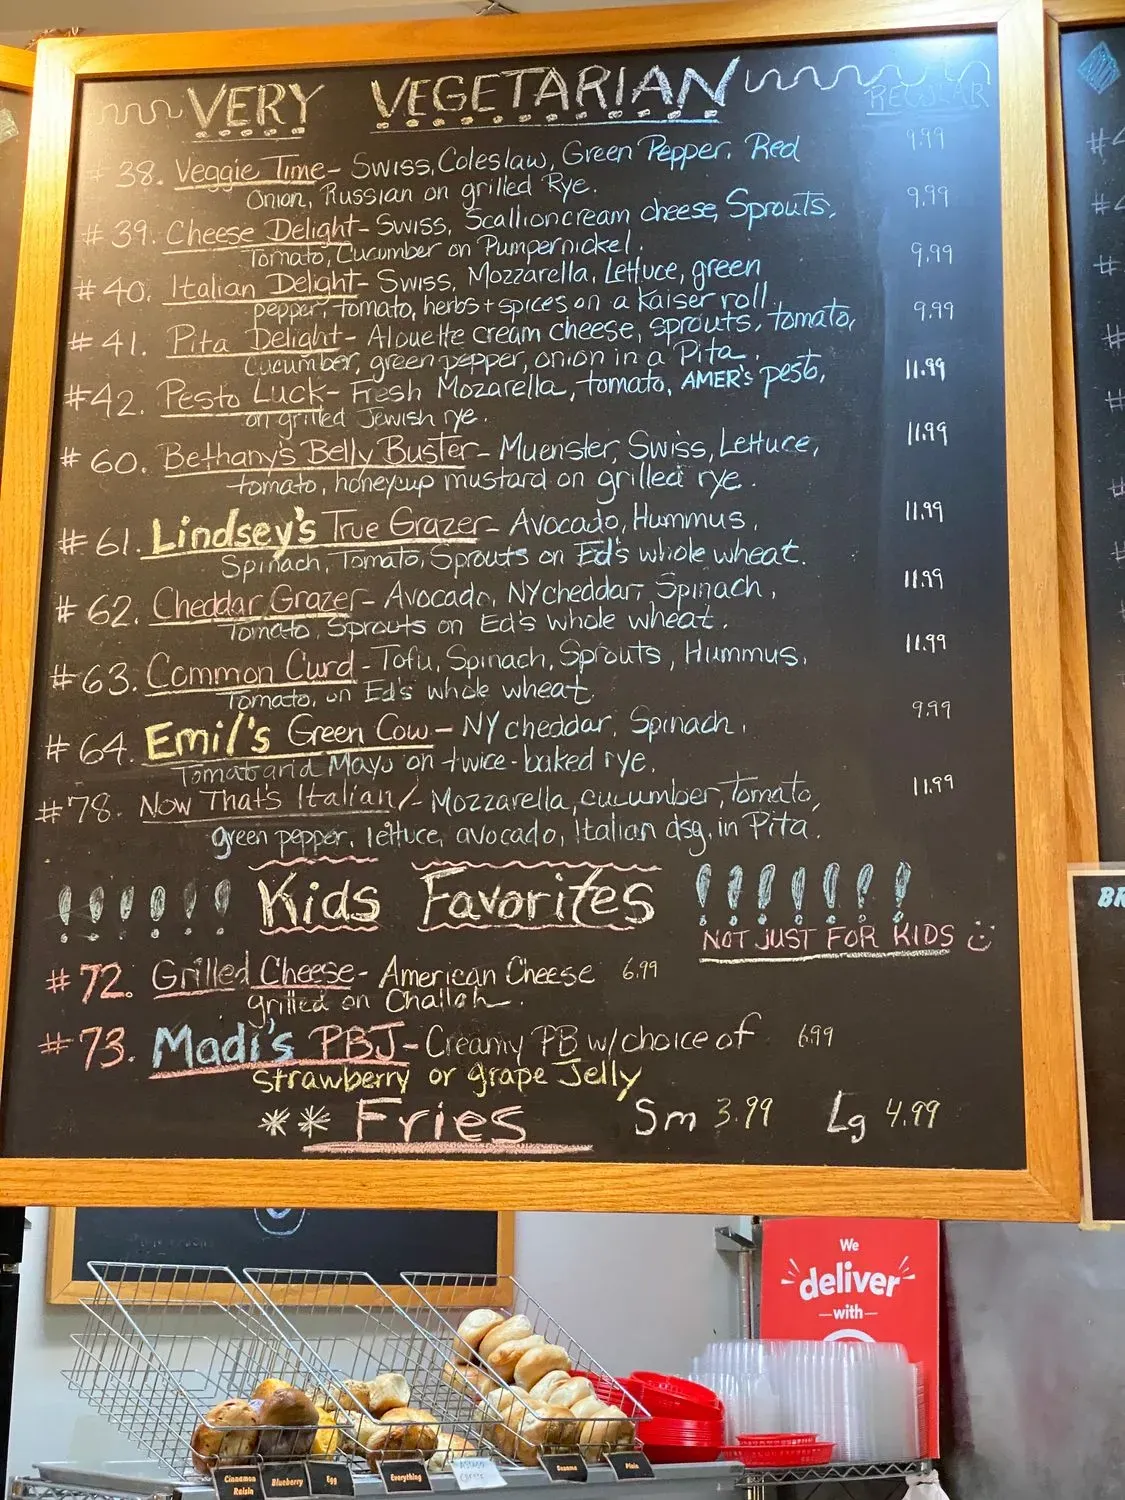 VERY VEGETARIAN
REGULAR
# 38. Veggie Time - Swiss, Coleslaw, Green Pepper. Red 9.99
Onion, Russian on grilled Rye.
# 39. Cheese Delight - Swiss, Scallion cream cheese, Sprouts, 9.99
Tomato, Cucumber on Pumpernickel.
# 40. Italian Delight - Swiss, Mozzarella, Lettuce, green 9.99
pepper, tomato, herbs + spices on a Kaiser roll.
# 41. Pita Delight - Alouette cream cheese, sprouts, tomato, 9.99
Cucumber, green pepper, onion in a Pita.
#42. Pesto Luck - Fresh Mozarella, tomato, AMER's pesto, 11.99
on grilled Jewish rye.
# 60. Bethany's Belly Buster - Muenster, Swiss, Lettuce, 11.99
tomato, honeycup mustard on grilled rye.
# 61. Lindsey's True Grazer - Avocado, Hummus, 11.99
Spinach, Tomato, Sprouts on Ed's whole wheat.
# 62. Cheddar Grazer - Avocado, NY cheddar, Spinach, 11.99
Tomato, Sprouts on Ed's whole wheat.
#63. Common Curd - Tofu, Spinach, Sprouts, Hummus, 11.99
Tomato, on Ed's whole wheat.
# 64. Emil's Green Cow - NY cheddar, Spinach, 9.99
Tomato and Mayo on twice-baked rye.
#78. Now That's Italian! - Mozzarella, cucumber, Tomato, 11.99
green pepper, lettuce, avocado, Italian dsg, in Pita.
!!!!!! Kids Favorites !!!!!!!
NOT JUST FOR KIDS
#72. Grilled Cheese - American Cheese 6.99
grilled on Challah.
#73. Madi's PBJ - Creamy PB w/choice of 6.99
Strawberry or grape Jelly
** Fries Sm 3.99 Lg 4.99
BR
We
deliver
with
Cinnamon
Raisin
Blueberry
Egg
Everything
Sesame
Plain